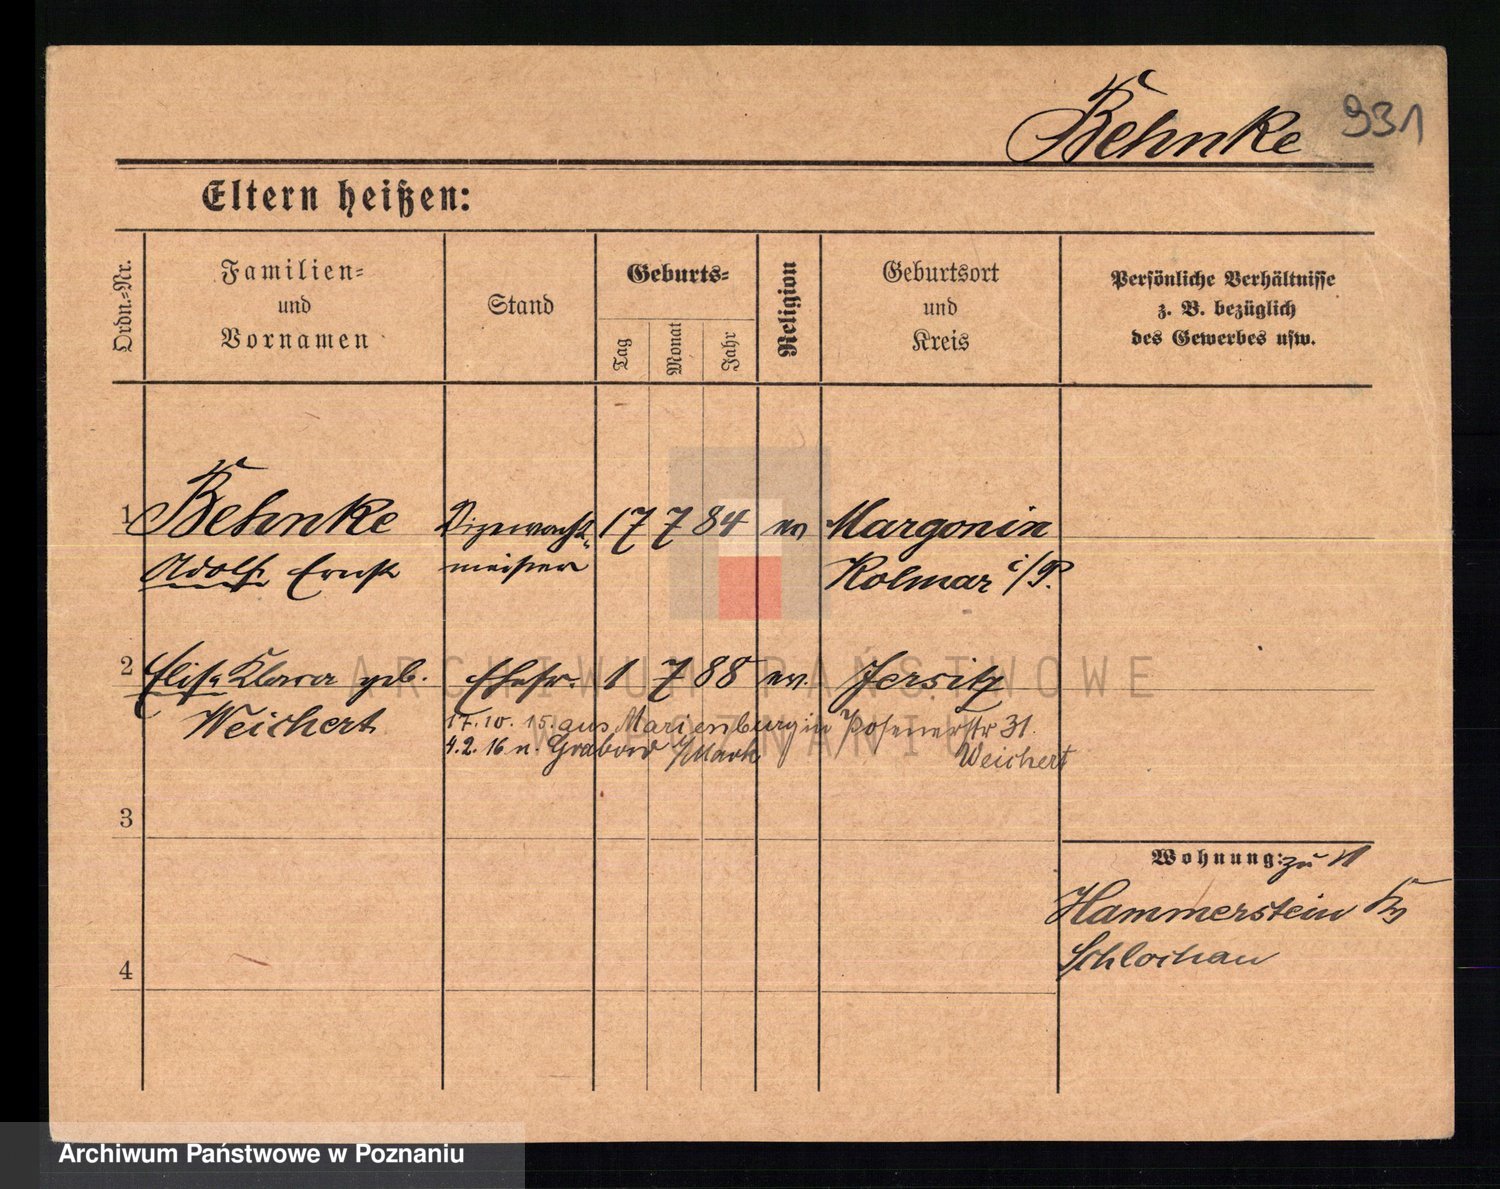 Behnke 931
Eltern heißen:
Ordn.-Nr.
Familien-
und
Vornamen
Stand
Geburts-
Tag
Monat
Jahr
Religion
Geburtsort
und
Kreis
Persönliche Verhältnisse
z. B. bezüglich
des Gewerbes usw.
1 Behnke Vizewacht- 17 7 84 ev Margonin
Adolf Ernst meister Kolmar i/P.
2 Elise Klara geb. Ehefr. 1 7 88 ev. Jersitz
Weichert
17.10.15. aus Marienburg in Posenerstr 31.
4.2.16 n. Grabow i/Mark Weichert
3
Wohnung: zu 1
Hammerstein Kr
Schlochau
4
ARCHIWUM PAŃSTWOWE
W POZNANIU
Archiwum Państwowe w Poznaniu